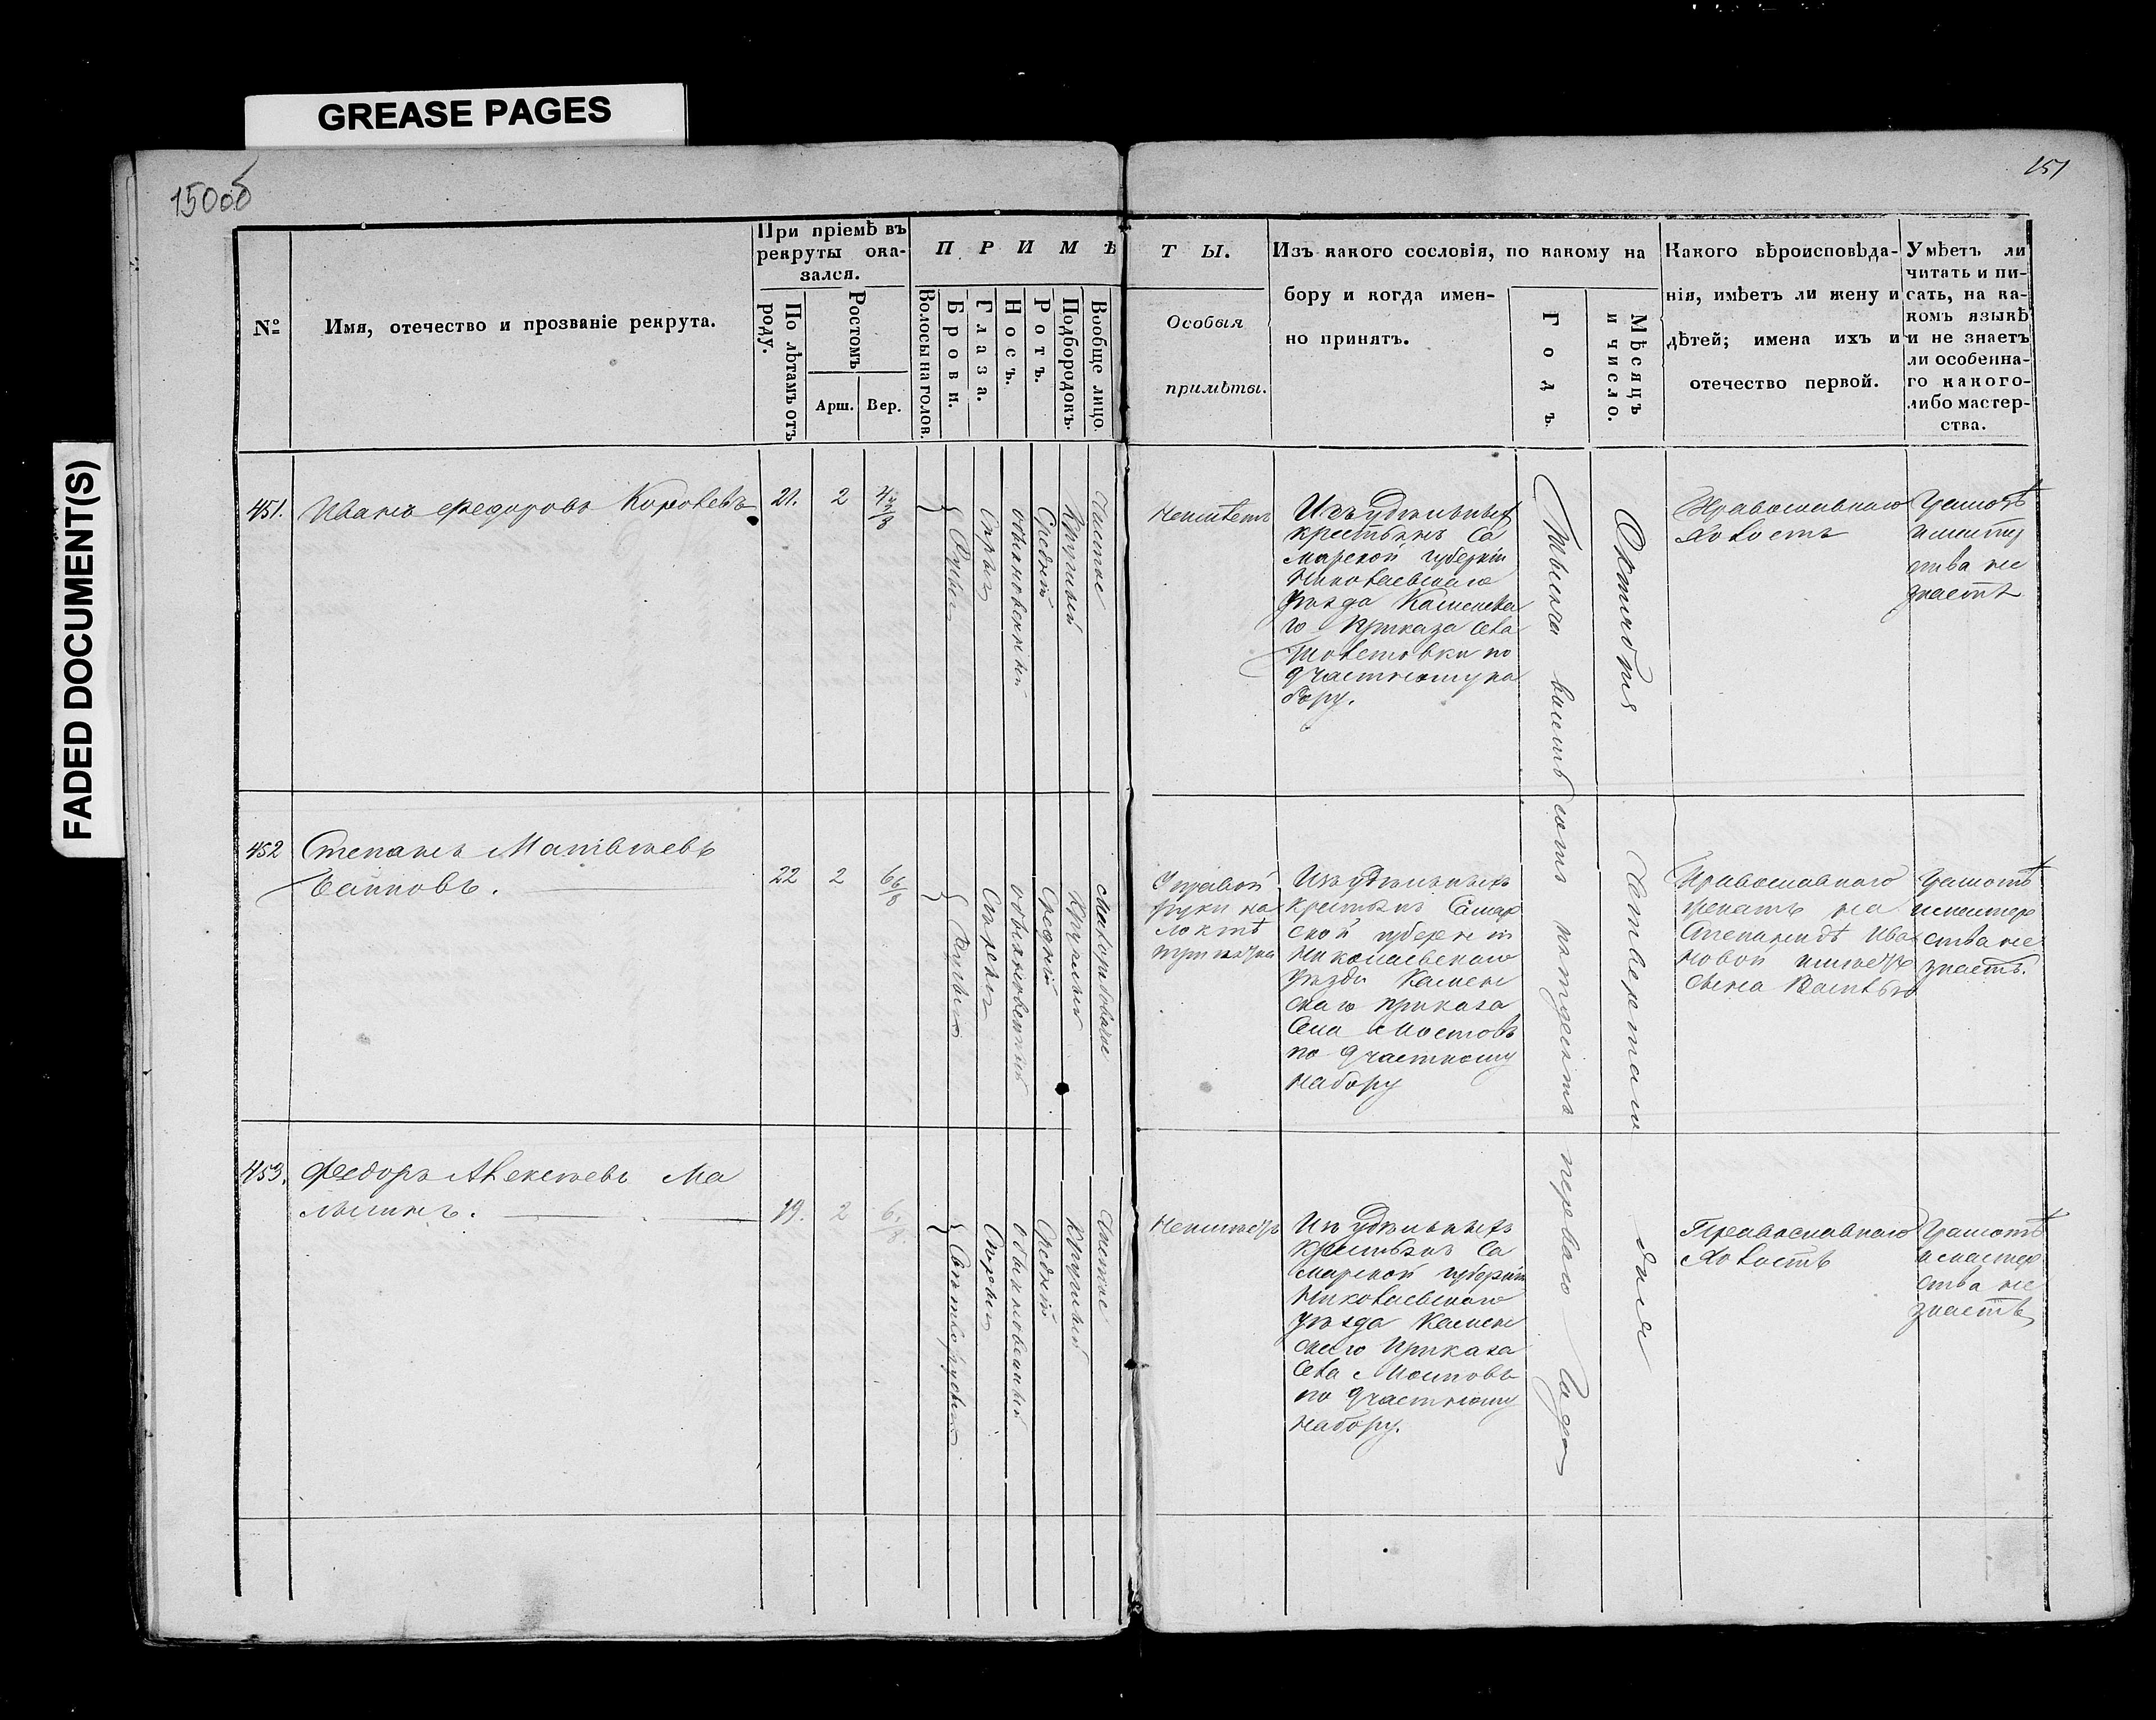 GREASE PAGES
FADED DOCUMENT(S)
150об
151
№
Имя, отечество и прозваніе рекрута.
При пріемѣ въ
рекруты ока-
зался.
По лѣтамъ отъ
роду.
Ростомъ
Арш.
Вер.
ПРИМѢ
Волосы на голов.
Брови.
Глаза.
Носъ.
Ротъ.
Подбородокъ.
Вообще лицо.
ТЫ.
Особыя
примѣты.
Изъ какого сословія, по какому на
бору и когда имен-
но принятъ.
Годъ.
Мѣсяцъ
и число.
Какого вѣроисповѣда-
нія, имѣетъ ли жену и
дѣтей; имена ихъ и
отечество первой.
Умѣетъ ли
читать и пи-
сать, на ка-
комъ языкѣ
и не знаетъ
ли особенна-
го какого-
либо мастер-
ства.
451.
Иванъ Федоровъ
21.
2
4
Русыя
Сѣрыя
обыкновенный
Средній
Круглый
Чистое
Неимѣетъ
Изъ удѣльныхъ
крестьянъ Са
марской губерніи
Николаевскаго
уѣзда Каменска
го Приказа села
по
участному на
бору.
Тысяча восемь сотъ пятдесятъ перваго Года
Октября
Четвертаго
дня
Православнаго
Холостъ
Грамотѣ
и мастер
ства не
знаетъ
452
Степанъ Матвѣевъ
22
2
6 6/8
Русыя
обыкновенный
Средній
Круглый
У правой
руки на
локтѣ
Изъ удѣльныхъ
крестьянъ Самар
ской губерніи
Николаевскаго
уѣзда Камен
скаго приказа
Села Мостовъ
по участному
набору
Православнаго
женатъ на
Степанидѣ Ива
новой имѣетъ
сына
Грамотѣ
и мастер
ства не
знаетъ.
453.
Федоръ Алексѣевъ Ма
19.
2
6
Свѣтлорусыя
Сѣрыя
Обыкновенный
Средній
Круглый
Чистое
Неимѣетъ
Изъ удѣльныхъ
крестьянъ Са
марской губерніи
Николаевскаго
уѣзда Камен
скаго Приказа
Села Мостовъ
по участному
набору.
Православнаго
Холостъ
Грамотѣ
и мастер
ства не
знаетъ